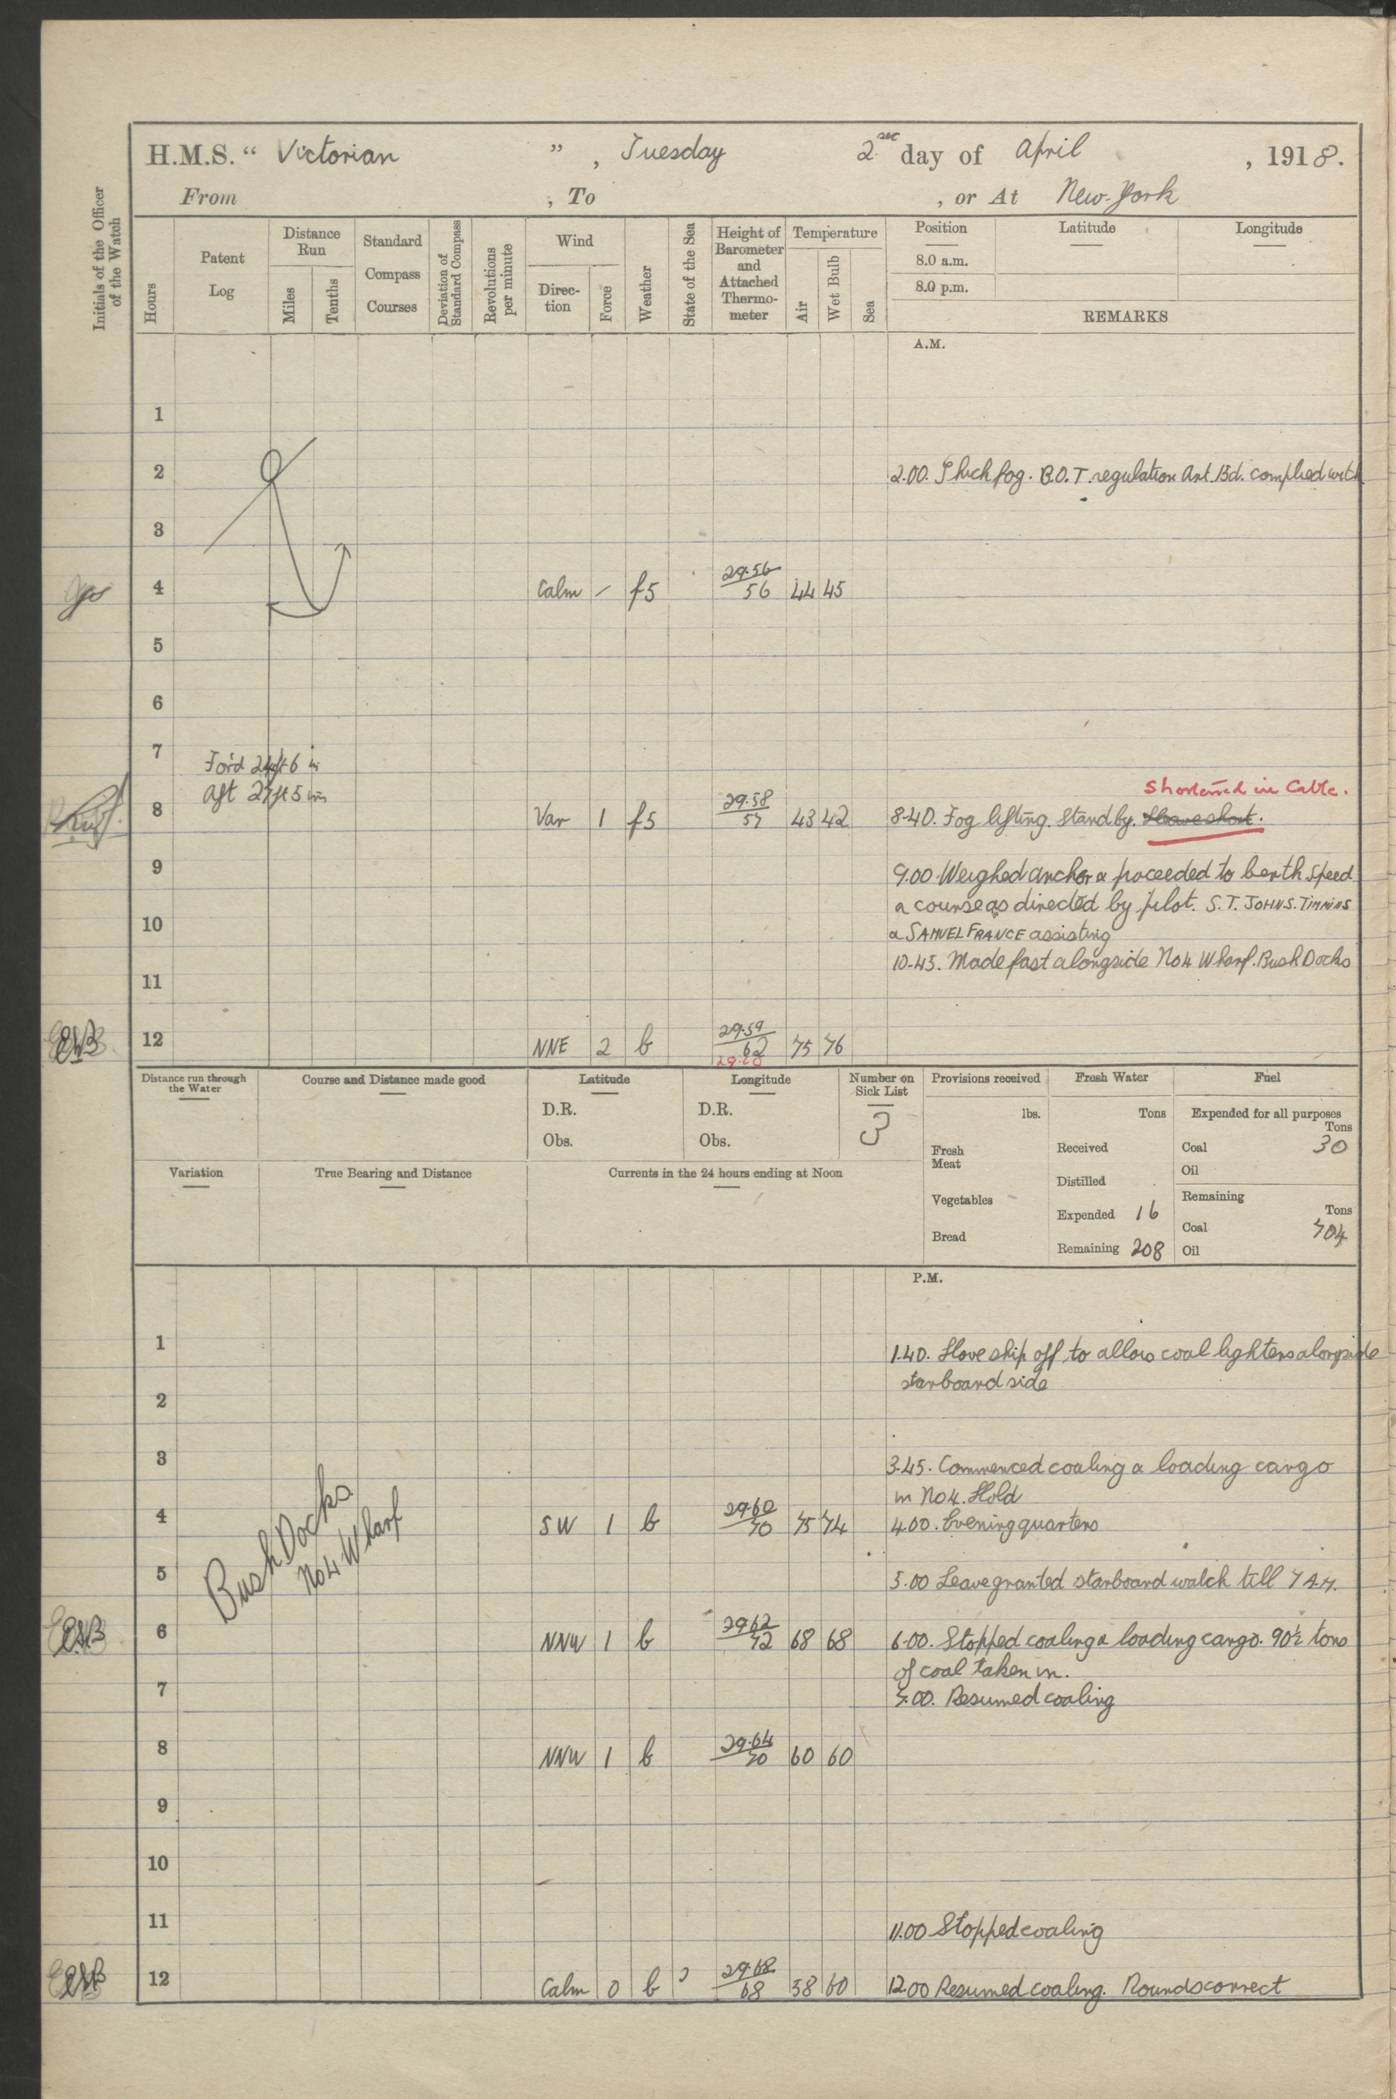 H.M.S. " Victorian " , Tuesday 2nd day of April , 1918.
From , To , or At New-York
Initials of the Officer of the Watch
Hours
Patent Log
Distance Run
Miles
Tenths
Standard Compass Courses
Deviation of Standard Compass
Revolutions per minute
Wind
Direction
Force
Weather
State of the Sea
Height of Barometer and Attached Thermometer
Temperature
Air
Wet Bulb
Sea
Position Latitude Longitude
8.0 a.m.
8.0 p.m.
REMARKS
A.M.
1
2 2.00. Thick fog. B.O.T. regulation Art. Bd. complied with
3
4 Calm / f5 29.56 56 44 45
5
6
7
For'd 24ft 6 in
Aft 27ft 5 ins
Shortened in Cable.
8 Var 1 f5 29.58 57 43 42 8.40. Fog lifting. Stand by. Heave short.
9 9.00 Weighed anchor & proceeded to berth speed
& course as directed by pilot. S.T. JOHN S. TIMMINS
10 & SAMUEL FRANCE assisting
10.45. Made fast alongside No4 Wharf. Bush Docks
11
EWB 12 NNE 2 b 29.59 62 75 76
29.60
Distance run through the Water
Course and Distance made good
Latitude
D.R.
Obs.
Longitude
D.R.
Obs.
Number on Sick List
3
Provisions received
lbs.
Fresh Meat
Vegetables
Bread
Fresh Water
Tons
Received
Distilled
Expended 16
Remaining 208
Fuel
Expended for all purposes
Tons
Coal 30
Oil
Remaining
Tons
Coal 704
Oil
Variation
True Bearing and Distance
Currents in the 24 hours ending at Noon
P.M.
1 1.40. Hove ship off to allow coal lighters alongside
starboard side
2
3 3.45. Commenced coaling & loading cargo
in No4. Hold
4 SW 1 b 29.60 70 75 74 4.00. Evening quarters
Bush Docks
No4 Wharf
5 5.00 Leave granted starboard watch till 7 A.M.
EWB 6 NNW 1 b 29.62 72 68 68 6.00. Stopped coaling & loading cargo. 90½ tons
of coal taken in.
7 7.00. Resumed coaling
8 NNW 1 b 29.64 70 60 60
9
10
11 11.00 Stopped coaling
EWB 12 Calm 0 b 29.68 68 58 60 12.00 Resumed coaling. Rounds correct